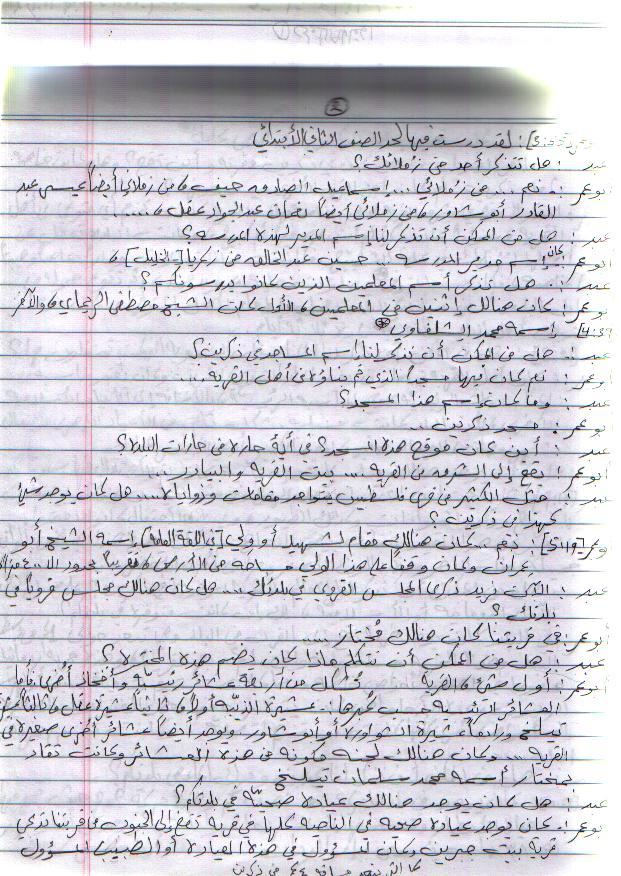 ٣
لقد درست فيها لحد الصف الثاني الأبتدائي
عبد : هل تتذكر أحد من زملائك؟
بوعمر : نعم ... من زملائي ... إسماعيل الصادمه حنيف، من زملائي أيضاً عيسى عبد
القادر أبو شاور، من زملائي أيضاً نعمان عبد الجواد عقل، ....
عبد : هل من الممكن أن تتذكر لنا إسم المدير لهذه المدرسة؟
أبوعمر : كان إسم مدير المدرسة .. حسين عبد الخالق من زكريا [الخليل]،
عبد : هل تتذكر أسم المعلمين الذين كانوا يدرسونكم؟
بوعمر : كان هنالك إثنين من المعلمين، الأول كان الشيخ مصطفى، والآخر
[4:39] إسمه محمد
عبد : هل من الممكن أن تذكر لنا إسم المساجد في ذكرين؟
أبوعمر : نعم كان فيها مسجداً الذي تم بناؤه من أهل القرية ...
عبد : وما كان إسم هذا المسجد؟
بوعمر : مسجد ذكرين ..
عبد : أين كان موقع هذه المسجد؟ في أية حاره من حارات البلده؟
أبوعمر : يقع إلى الشرق من القرية ... بيت القرية والبيادر ...
عبد : مثل الكثير من قرى فلسطين يتواجد مقامات وزوايا، ... هل كان يوجد شيئ
كهذا في ذكرين؟
[5:19] : نعم .. كان هنالك مقام لشهيد أو ولي [في اللغة العامة] إسمه الشيخ أبو
عمران وكان وقفاً على هذا الولي مساحه من الأرض، تقريباً بحدود الـ
عبد : الآن نريد ذكرى المجلس القروي في بلدتك ... هل كان هنالك مجلس قروياً في
بلدتك؟
أبوعمر : في قريتنا كان هنالك مُختار ....
عبد : هل من الممكن أن تتكلم ماذا كان يضم هذه المخترة؟
أبوعمر : أول شئ، القرية تُشكل من أربعة عشائر رئيسيّه وأفخاذ أخرى، فأما
العشائر الرئيسية حسب كُبرها : عشيرة أولاً، ثانياً عشيرة عقل، ثالثاً عشيرة
تيلخ ورابعاً عشيرة الشواورة أو أبو شاور، ويوجد أيضاً عشائر أخرى صغيرة في
القرية .. وكان هنالك لجنه مكونه من هذه العشائر وكانت تقاد
بمختار أسمه محمد سلمان تيلخ
عبد : هل كان يوجد هنالك عيادة صحيّه في بلدتكم؟
بوعمر : كان يوجد عيادة صحيه في الناحية كلها في قرية تقع إلى الجنوب من قريتنا تدعى
قرية بيت جبرين وكان المسؤول في هذه العيادة أو الطبيب المسؤول